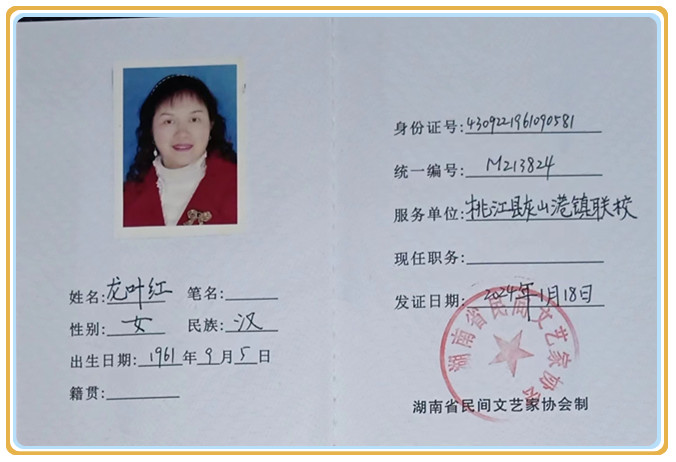 姓名:龙叶红 笔名:
性别: 女 民族: 汉
出生日期: 1961 年 9 月 5 日
籍贯:
身份证号:4309221961090581
统一编号: M213824
服务单位:桃江县灰山港镇联校
现任职务:
发证日期: 2024年1月18日
湖南省民间文艺家协会
湖南省民间文艺家协会制